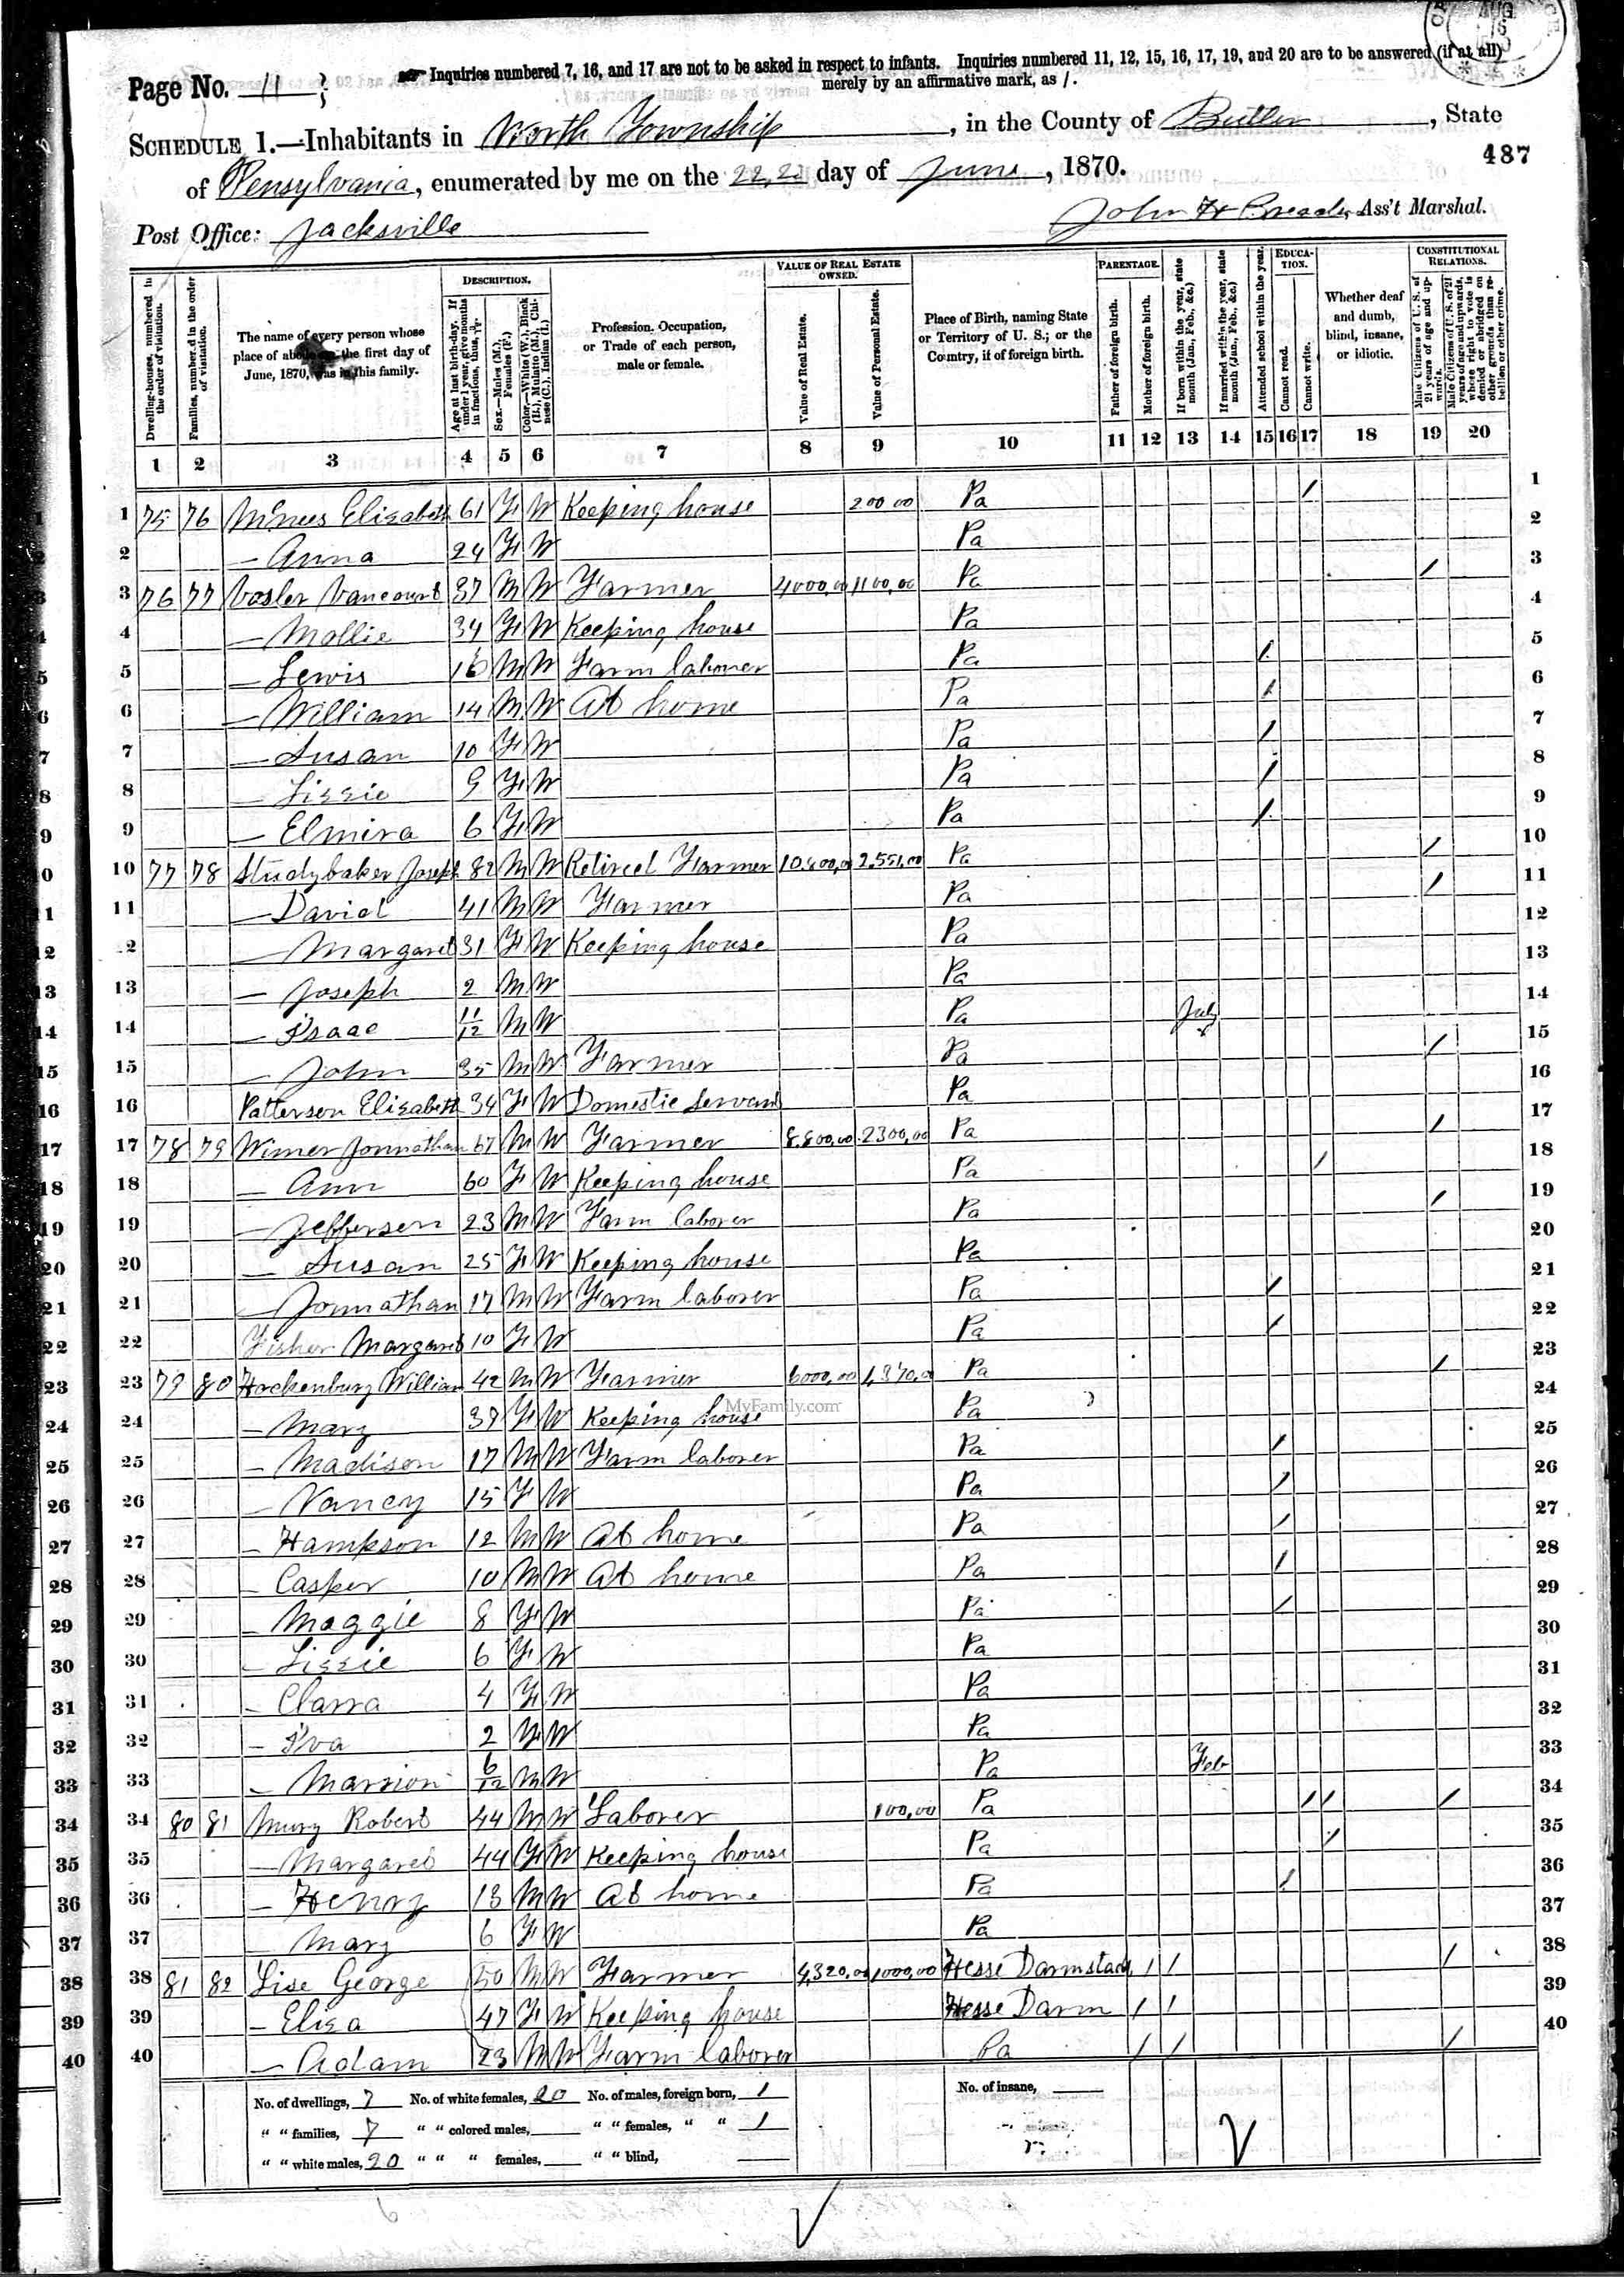 AUG
Page No. 11
Inquiries numbered 7, 16, and 17 are not to be asked in respect to infants. Inquiries numbered 11, 12, 15, 16, 17, 19, and 20 are to be answered (if at all)
merely by an affirmative mark, as /.
SCHEDULE 1.—Inhabitants in Worth Township, in the County of Butler, State
487
of Pensylvania, enumerated by me on the 22,23 day of June, 1870.
Post Office: Jacksville
John H Ass't Marshal.
Dwelling-houses, numbered in the order of visitation.
Families, numbered in the order of visitation.
The name of every person whose place of abode on the first day of June, 1870, was in this family.
DESCRIPTION.
Age at last birth-day. If under 1 year, give months in fractions, thus, 3/12.
Sex.—Males (M.), Females (F.)
Color.—White (W.), Black (B.), Mulatto (M.), Chinese (C.), Indian (I.)
Profession, Occupation, or Trade of each person, male or female.
VALUE OF REAL ESTATE OWNED.
Value of Real Estate.
Value of Personal Estate.
Place of Birth, naming State or Territory of U. S.; or the Country, if of foreign birth.
PARENTAGE.
Father of foreign birth.
Mother of foreign birth.
If born within the year, state month (Jan., Feb., &c.)
If married within the year, state month (Jan., Feb., &c.)
Attended school within the year.
EDUCATION.
Cannot read.
Cannot write.
Whether deaf and dumb, blind, insane, or idiotic.
CONSTITUTIONAL RELATIONS.
Male Citizens of U. S. of 21 years of age and upwards.
Male Citizens of U. S. of 21 years of age and upwards, whose right to vote is denied or abridged on other grounds than rebellion or other crime.
1 2 3 4 5 6 7 8 9 10 11 12 13 14 15 16 17 18 19 20
1 75 76 McNees Elizabeth 61 F W Keeping house 200 00 Pa / 1
2 — Anna 24 F W Pa 2
3 76 77 Vosler Vancourt 37 M W Farmer 4000,00 1100,00 Pa / 3
4 — Mollie 34 F W Keeping house Pa 4
5 — Lewis 16 M W Farm laborer Pa / 5
6 — William 14 M W At home Pa / 6
7 — Susan 10 F W Pa / 7
8 — Lizzie 9 F W Pa / 8
9 — Elmira 6 F W Pa / 9
10 77 78 Studybaker Joseph 82 M W Retired Farmer 2,551,00 Pa / 10
11 — David 41 M W Farmer Pa / 11
12 — Margaret 31 F W Keeping house Pa 12
13 — Joseph 2 M W Pa 13
14 — Isaac 11/12 M W Pa July 14
15 — John 35 M W Farmer Pa / 15
16 Patterson Elizabeth 34 F W Domestic Servant Pa 16
17 78 79 Wimer Jonnathan 67 M W Farmer 8,800,00 2300,00 Pa / 17
18 — Ann 60 F W Keeping house Pa / 18
19 — Jefferson 23 M W Farm laborer Pa / 19
20 — Susan 25 F W Keeping house Pa 20
21 — Jonnathan 17 M W Farm laborer Pa / 21
22 Fisher Margaret 10 F W Pa / 22
23 79 80 Hockenbury William 42 M W Farmer 6000,00 1,370,00 Pa / 23
24 — Mary 37 F W Keeping house Pa 24
MyFamily.com
25 — Madison 17 M W Farm laborer Pa / 25
26 — Nancy 15 F W Pa / 26
27 — Hampson 12 M W At home Pa / 27
28 — Casper 10 M W At home Pa / 28
29 — Maggie 8 F W Pa / 29
30 — Lizzie 6 F W Pa 30
31 — Clarra 4 F W Pa 31
32 — Iva 2 F W Pa 32
33 — Marrion 6/12 M W Pa Feb 33
34 80 81 Robert 44 M W Laborer 100,00 Pa / / / 34
35 — Margaret 44 F W Keeping house Pa / 35
36 — Henry 13 M W At home Pa / 36
37 — Mary 6 F W Pa 37
38 81 82 Lise George 50 M W Farmer 4,320,00 1000,00 Hesse Darmstadt / / / 38
39 — Eliza 47 F W Keeping house Hesse Darm / / 39
40 — Adam 23 M W Farm laborer Pa / / / 40
No. of dwellings, 7 No. of white females, 20 No. of males, foreign born, 1 No. of insane,
" " families, 7 " " colored males, " " females, " " 1
" " white males, 20 " " " females, " " blind,